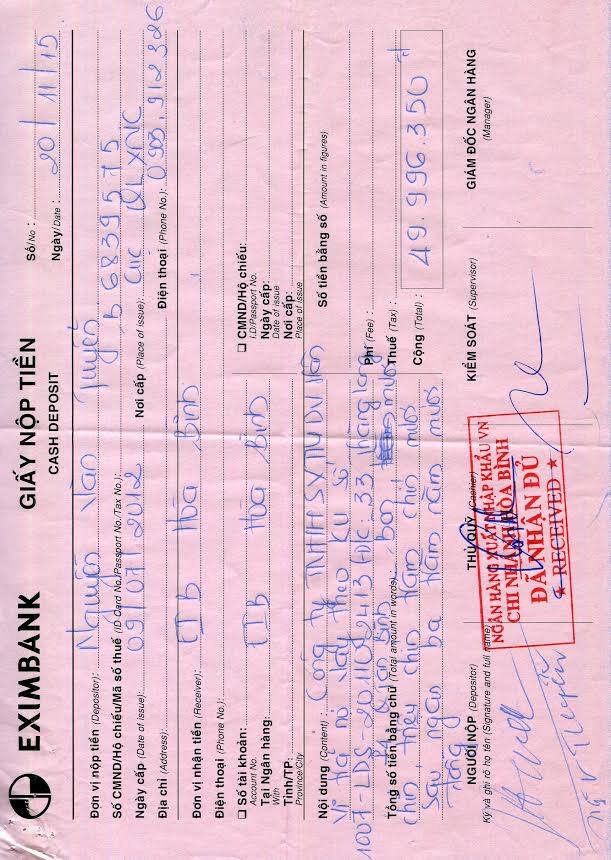 EXIMBANK
GIẤY NỘP TIỀN
CASH DEPOSIT
Số/No :
Ngày/Date : 20/11/15
Đơn vị nộp tiền (Depositor): Nguyễn Văn Tuyến
Số CMND/Hộ chiếu/Mã số thuế (ID Card No./Passport No./Tax No.): B 6839575
Ngày cấp (Date of issue): 09/07/2012 Nơi cấp (Place of issue): Cục QLXNC
Địa chỉ (Address): Điện thoại (Phone No.): 0903.912326
Đơn vị nhận tiền (Receiver): EIB Hòa Bình
Điện thoại (Phone No.):
Số tài khoản:
Account No.
Tại Ngân hàng: EIB Hòa Bình
With
Tỉnh/TP:
Province/City
CMND/Hộ chiếu:
I.D/Passport No.
Ngày cấp:
Date of issue
Nơi cấp:
Place of issue
Nội dung (Content): Công ty TNHH SX TM DV
Số tiền bằng số (Amount in figures)
trả nợ vay theo KU số
1007-LDS-201109413 Đ/c: 33 hàng long
Phí (Fee) :
Thuế (Tax) :
Cộng (Total) : 49.996.350 đ
Tổng số tiền bằng chữ (Total amount in words): bốn mươi
chín triệu chín trăm chín mươi
sáu ngàn ba trăm năm mươi
đồng
NGƯỜI NỘP (Depositor)
Ký và ghi rõ họ tên (Signature and full name)
THỦ QUỸ (Cashier)
KIỂM SOÁT (Supervisor)
GIÁM ĐỐC NGÂN HÀNG
(Manager)
NGÂN HÀNG XUẤT NHẬP KHẨU VN
CHI NHÁNH HÒA BÌNH
ĐÃ NHẬN ĐỦ
★ RECEIVED ★
Ng V Tuyến